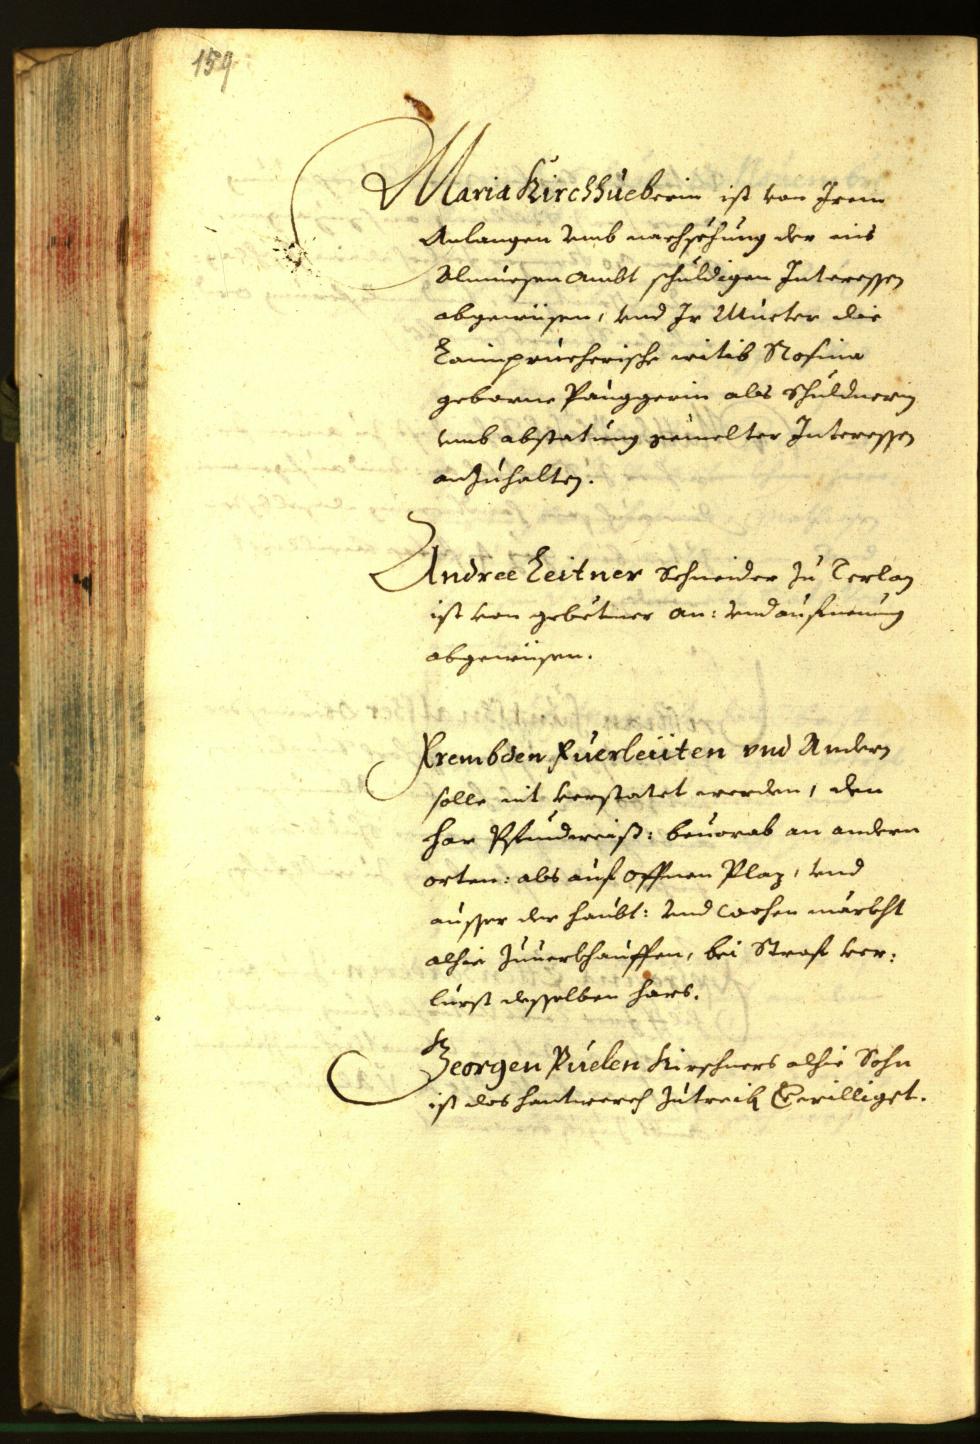 159
Maria Kirchhueberin ist von Irem
Anlangen umb nachsehung der ins
Almuesen Ambt schuldigen Interessen
abgewisen, und Ir Mueter die
witib Rosina
geborne Pauggerin als Schuldnerin
umb abstatung gemelter Interessen
anzuhalten.
Andree Leitner Schneider zu Terlan
ist von gebetner an: und aufnemung
abgewisen.
Frembden Fuerleüten vnd Andern
solle nit verstatet werden, den
har beuorab an andern
orten: als auf offnen Plaz, und
ausser der haubt: und wochen märckht
alhie zuuerkhauffen, bei Straf ver:
lurst desselben hars.
Georgen Puelen Kirschners alhie Sohn
ist das hantwerch zutreiben Bewilliget.